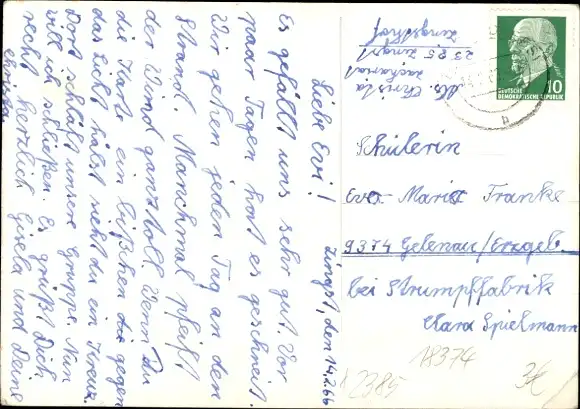 Zingst, den 14.2.66
Liebe Evi!
Es gefällt uns sehr gut. Vor
paar Tagen hat es geschneit.
Wir gehen jeden Tag an den
Strand. Manchmal pfeift
der Wind ganz toll. Wenn Du
die Karte ein bißchen die gegen
das Licht hälst siehst du ein Kreuz.
Dort schläft unsere Gruppe. Nun
will ich schließen. Es grüßt Dich
recht herzlich Gisela und Deine
Christa
Abs. Christa
Zacharias
2385 Zingst
Zingsthof
DEUTSCHE
DEMOKRATISCHE REPUBLIK
10
b
Schülerin
Eva-Maria Franke
9374 Gelenau/Erzgeb.
bei Strumpffabrik
Clara Spielmann
18374
2385
3€